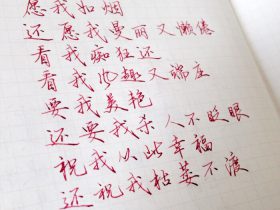 愿我如烟
还愿我曼丽又懒倦
看我痴狂还
看我风趣又端庄
要我美艳
还要我杀人不眨眼
祝我以此幸福
还祝我枯萎不渡